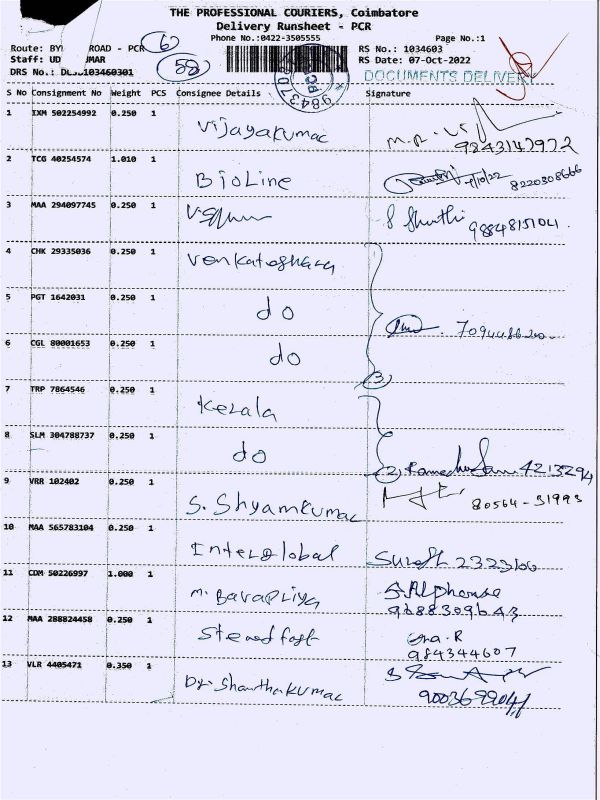 THE PROFESSIONAL COURIERS, Coimbatore
Delivery Runsheet - PCR
Phone No.:0422-3505555 Page No.:1
Route: ROAD - PCR 6 RS No.: 1034603
Staff: UD MAR 58 RS Date: 07-Oct-2022
DRS No.: 103460301 DOCUMENTS DELIVERY
S No Consignment No Weight PCS Consignee Details Signature
1 IXM 502254992 0.250 1 Vijayakumar 9843147972
2 TCG 40254574 1.010 1 BioLine 8220808666
3 MAA 294097745 0.250 1 S Shruthi 9884815104
4 CHK 29335036 0.250 1 Venkateshara
5 PGT 1642031 0.250 1 do
6 CGL 80001653 0.250 1 do
3
7 TRP 7864546 0.250 1 Kerala
8 SLM 304788737 0.250 1 do 2 4213294
9 VRR 102402 0.250 1 S. Shyamkumar 80564-31993
10 MAA 565783104 0.250 1 Interglobal Suresh 2323166
11 CDM 50226997 1.000 1 S. Alphonse
9688309643
12 MAA 288824458 0.250 1 Steadfast
984344607
13 VLR 4405471 0.350 1 Dr. Shanthakumar